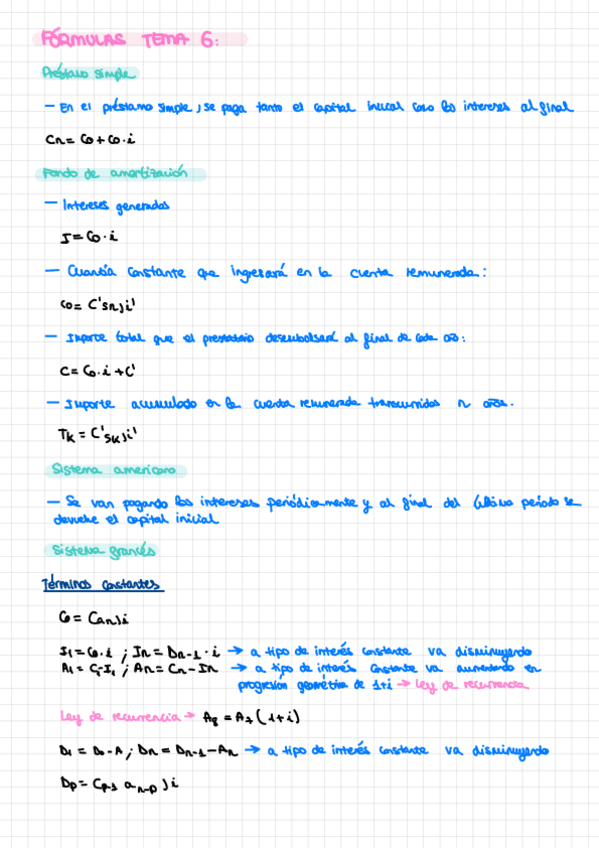 FÓRMULAS TEMA 6:
Préstamo simple
– En el préstamo simple, se paga tanto el capital inicial como los intereses al final
Cn = C0 + C0 · i
Fondo de amortización
– Intereses generados
I = C0 · i
– Cuantía constante que ingresará en la cuenta remunerada:
C0 = C' sn⌉i'
– Importe total que el prestatario desembolsará al final de cada año:
C = C0 · i + C'
– Importe acumulado en la cuenta remunerada transcurridos n años.
TK = C' sK⌉i'
Sistema americano
– Se van pagando los intereses periódicamente y al final del último periodo se
devuelve el capital inicial
Sistema francés
Términos constantes
C0 = C an⌉i
I1 = C0 · i ; In = Dn-1 · i → a tipo de interés constante va disminuyendo
A1 = C1-I1 ; An = Cn - In → a tipo de interés constante va aumentando en
progresión geométrica de 1+i → Ley de recurrencia
Ley de recurrencia → A8 = A7 (1+i)
D1 = D0 - A ; Dn = Dn-1 - An → a tipo de interés constante va disminuyendo
Dp = Cp-1 a n-p ⌉i